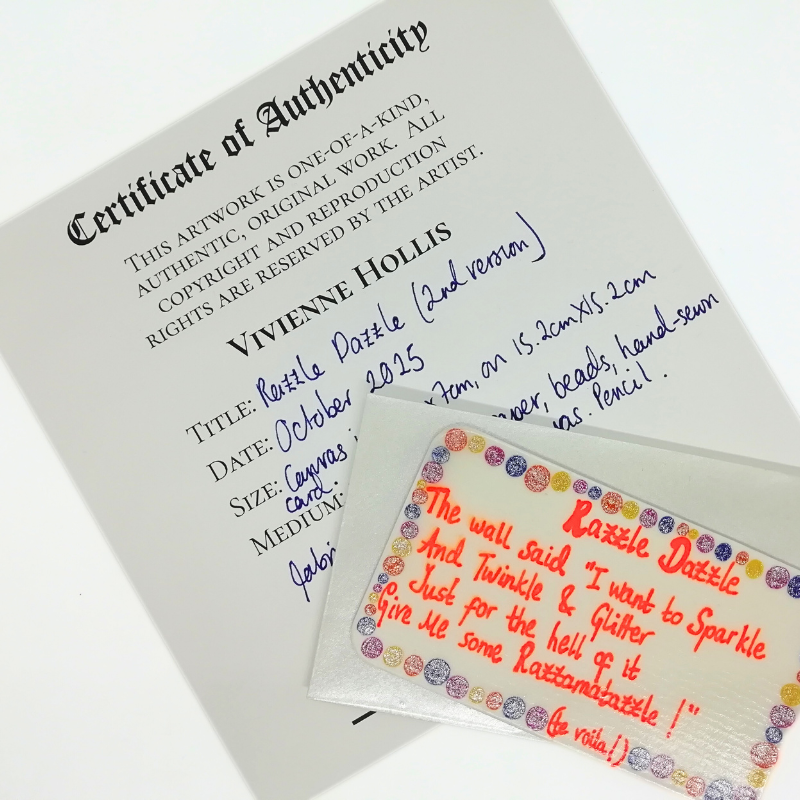 Certificate of Authenticity
THIS ARTWORK IS ONE-OF-A-KIND,
AUTHENTIC, ORIGINAL WORK. ALL
COPYRIGHT AND REPRODUCTION
RIGHTS ARE RESERVED BY THE ARTIST.
VIVIENNE HOLLIS
TITLE: Razzle Dazzle (2nd version)
DATE: October 2025
SIZE: Canvas x7cm, on 15.2cmX15.2cm
card.
MEDIUM: beads, hand-sewn
Pencil.
Razzle Dazzle
The wall said "I want to Sparkle
And Twinkle & Glitter
Just for the hell of it
Give Me some Razzamatazzle!"
(te voila!)